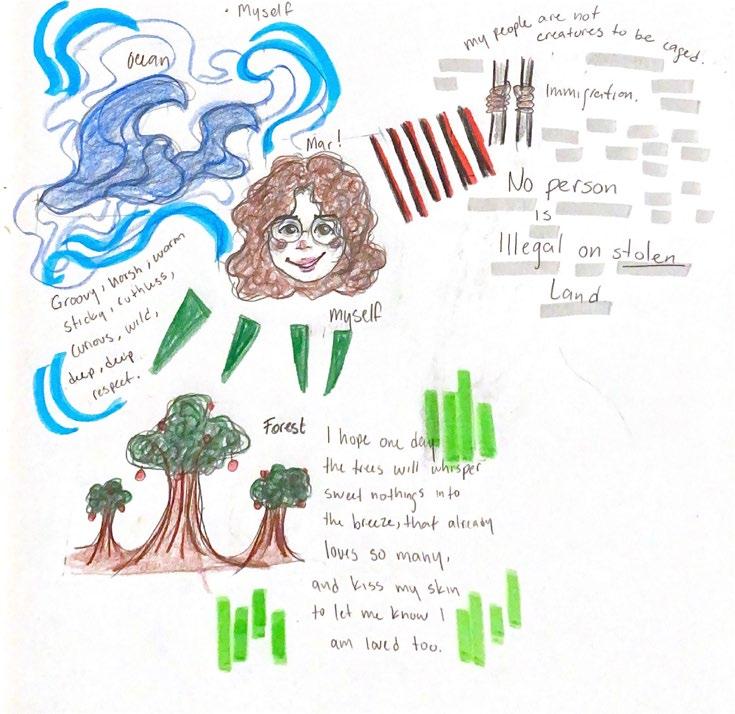 • Myself
Ocean
my people are not
creatures to be caged.
Immigration.
Mar!
No person
is
Illegal on stolen
Land
Groovy, harsh, warm
sticky, ruthless,
curious, wild,
deep, deep
respect.
myself
Forest
I hope one day
the trees will whisper
sweet nothings into
the breeze, that already
loves so many,
and kiss my skin
to let me know I
am loved too.